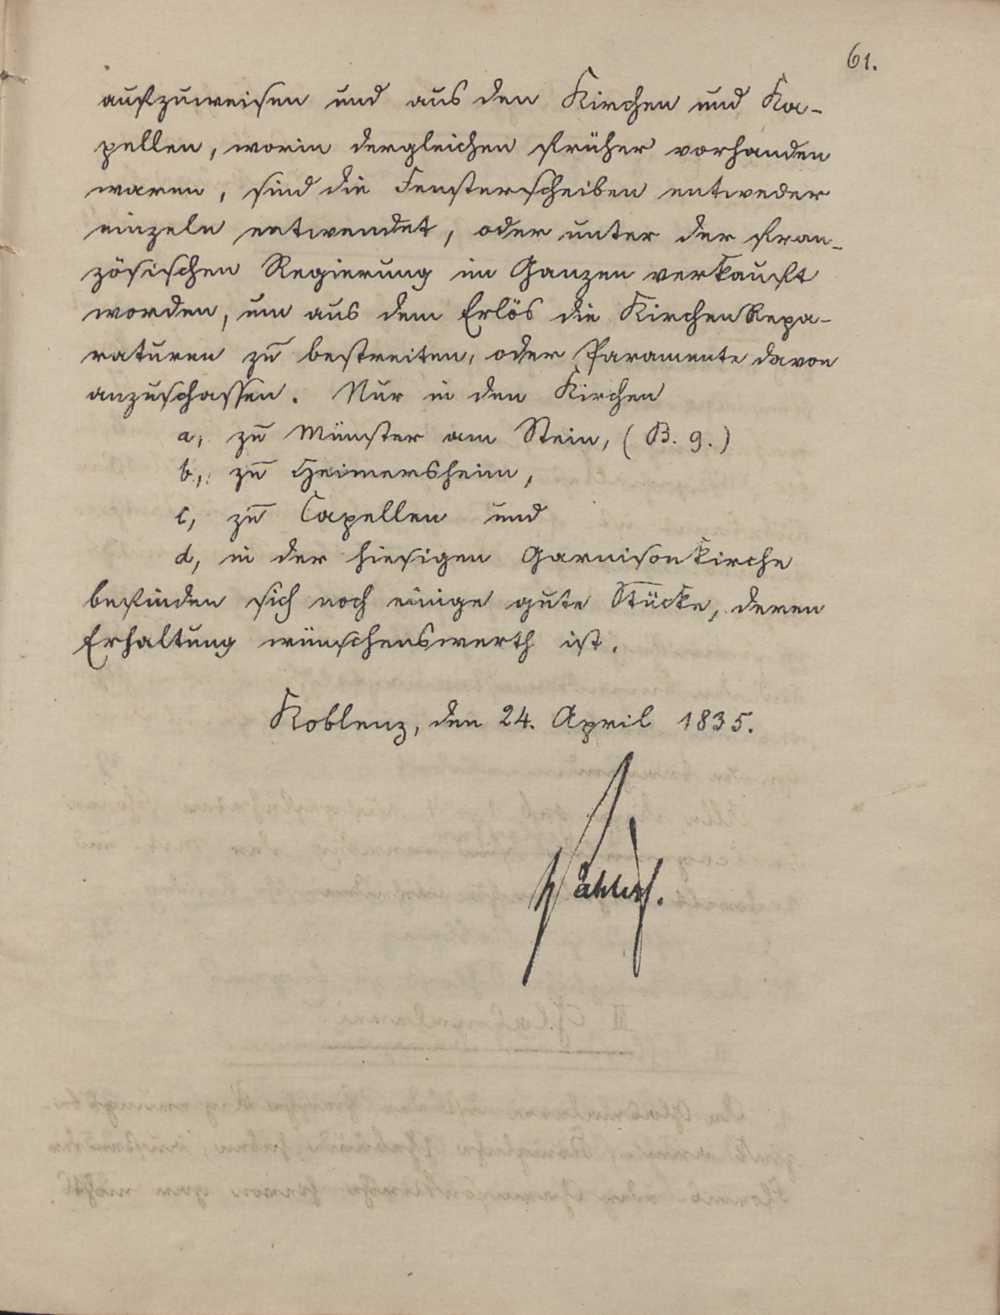 61.
aufzuweisen und aus den Kirchen und Ka-
pellen, worin dergleichen früher vorhanden
waren, sind die Fensterscheiben entweder
einzeln entwendet, oder unter der Fran-
zösischen Regierung im Ganzen verkauft
worden, um aus dem Erlös die Kirchen Repa-
raturen zu bestreiten, oder Paramente davon
anzuschaffen. Nur in den Kirchen
a, zu Münster am Stein, (B. g.)
b, zu Heimersheim,
c, zu Capellen und
d, in der hiesigen Garnisonkirche
befinden sich noch einige gute Stücke, deren
Erhaltung wünschenswerth ist.
Koblenz, den 24. April 1835.